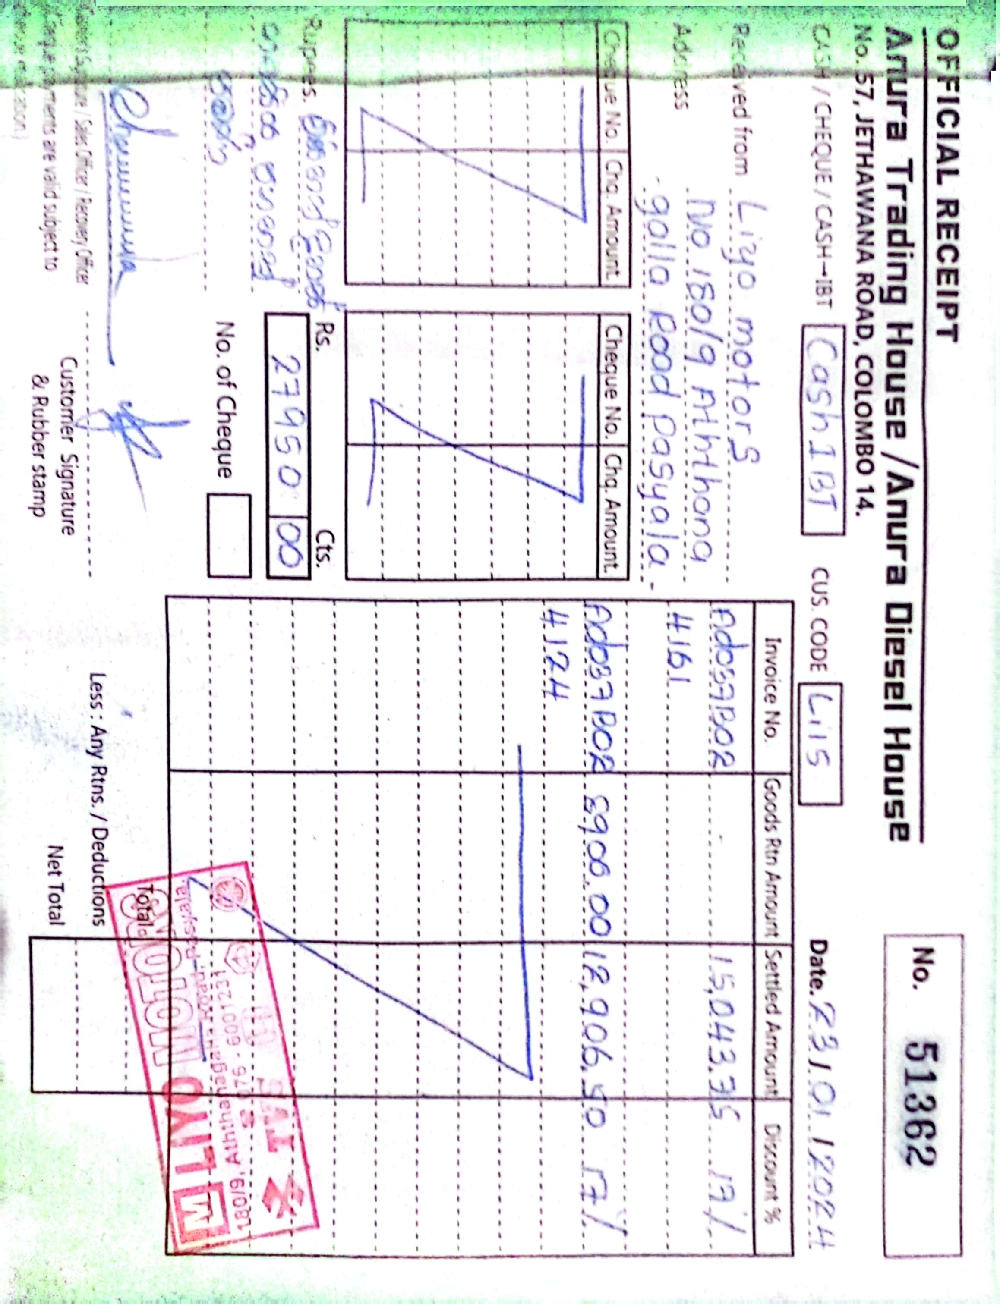 OFFICIAL RECEIPT
Anura Trading House / Anura Diesel House
No. 57, JETHAWANA ROAD, COLOMBO 14.
No. 51362
CASH / CHEQUE / CASH-IBT Cash IBT
CUS. CODE Li15
Date. 23/01/2024
Received from Liyo motors
Address No. 180/9 Aththana
galla Road Pasyala.
Cheque No. Chq. Amount.
Cheque No. Chq. Amount.
Invoice No. Goods Rtn Amount Settled Amount Discount %
Ado37B02 15,043.35 17%
4161
Ado37B02 8900.00 12,906.50 17%
4124
Rupees.
Rs. 27950 Cts. 00
No. of Cheque
Customer Signature
& Rubber stamp
/ Sales Officer / Recovery Officer
are valid subject to
Total
Less : Any Rtns. / Deductions
Net Total
LIYO MOTORS
180/9, Aththanagalla Road, Pasyala.